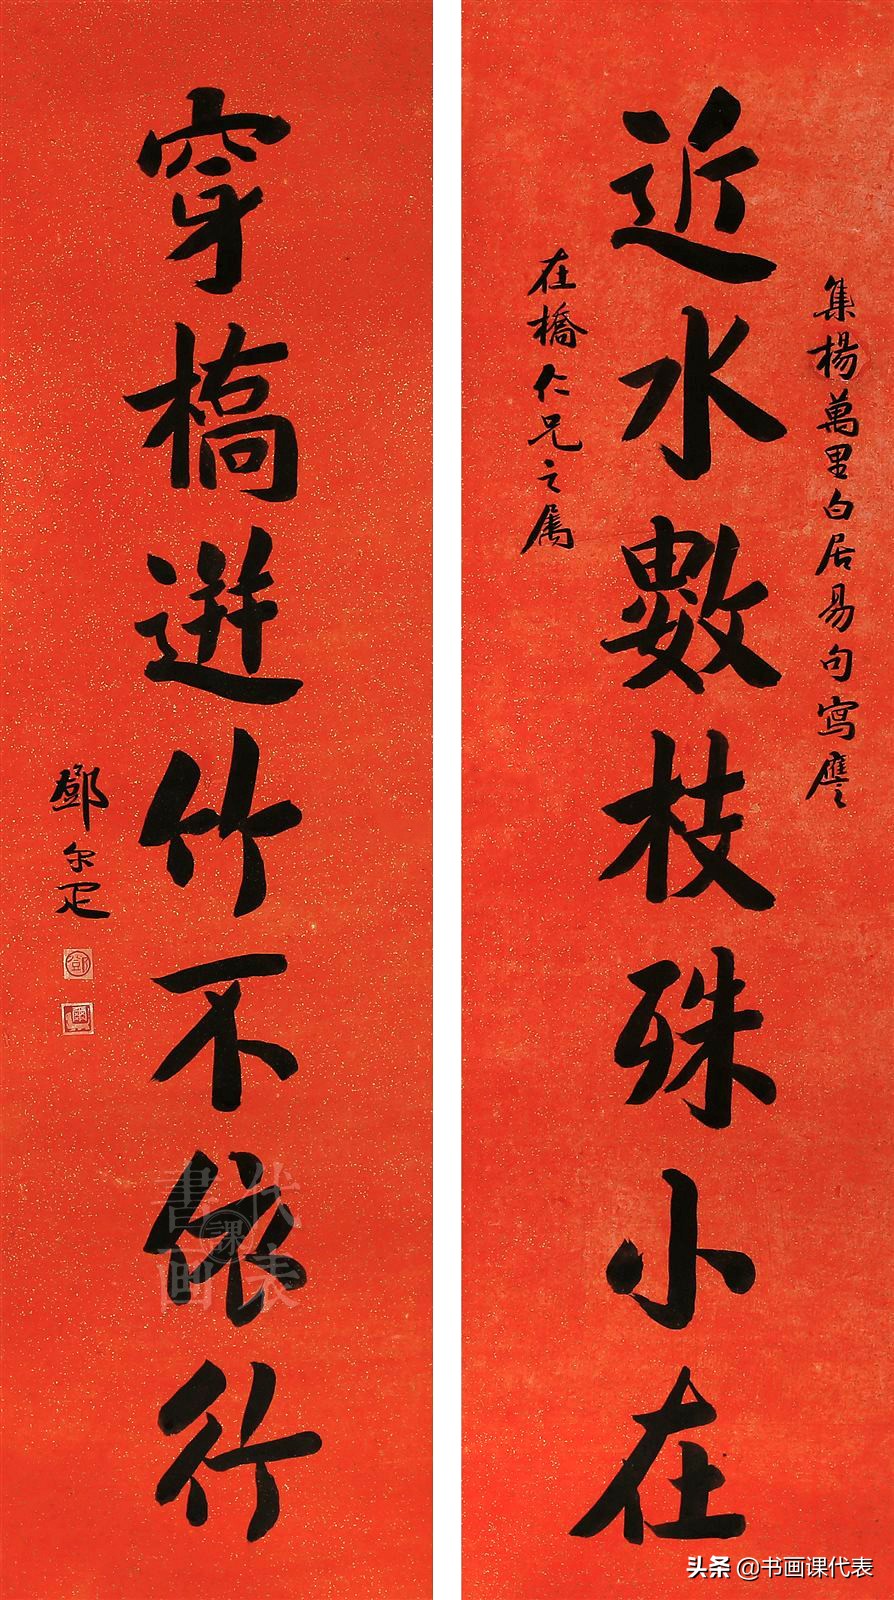 集楊萬里白居易句寫應
近水數枝殊小在
在橋仁兄之属
穿橋逬竹不依行
鄧尔疋
鄧
書画課代表
头条 @书画课代表